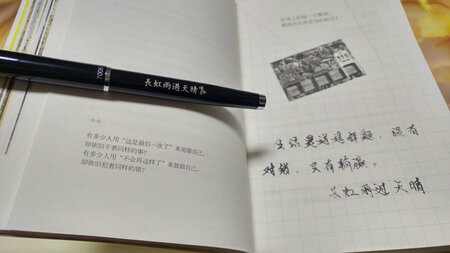 長虹雨過天晴
有多少人用“这是最后一次了”来说服自己，
却依旧干着同样的事？
有多少人用“不会再这样了”来鼓励自己，
却依旧犯着同样的错？
生活 题，没有
对错，只有输赢。
长虹雨过天晴